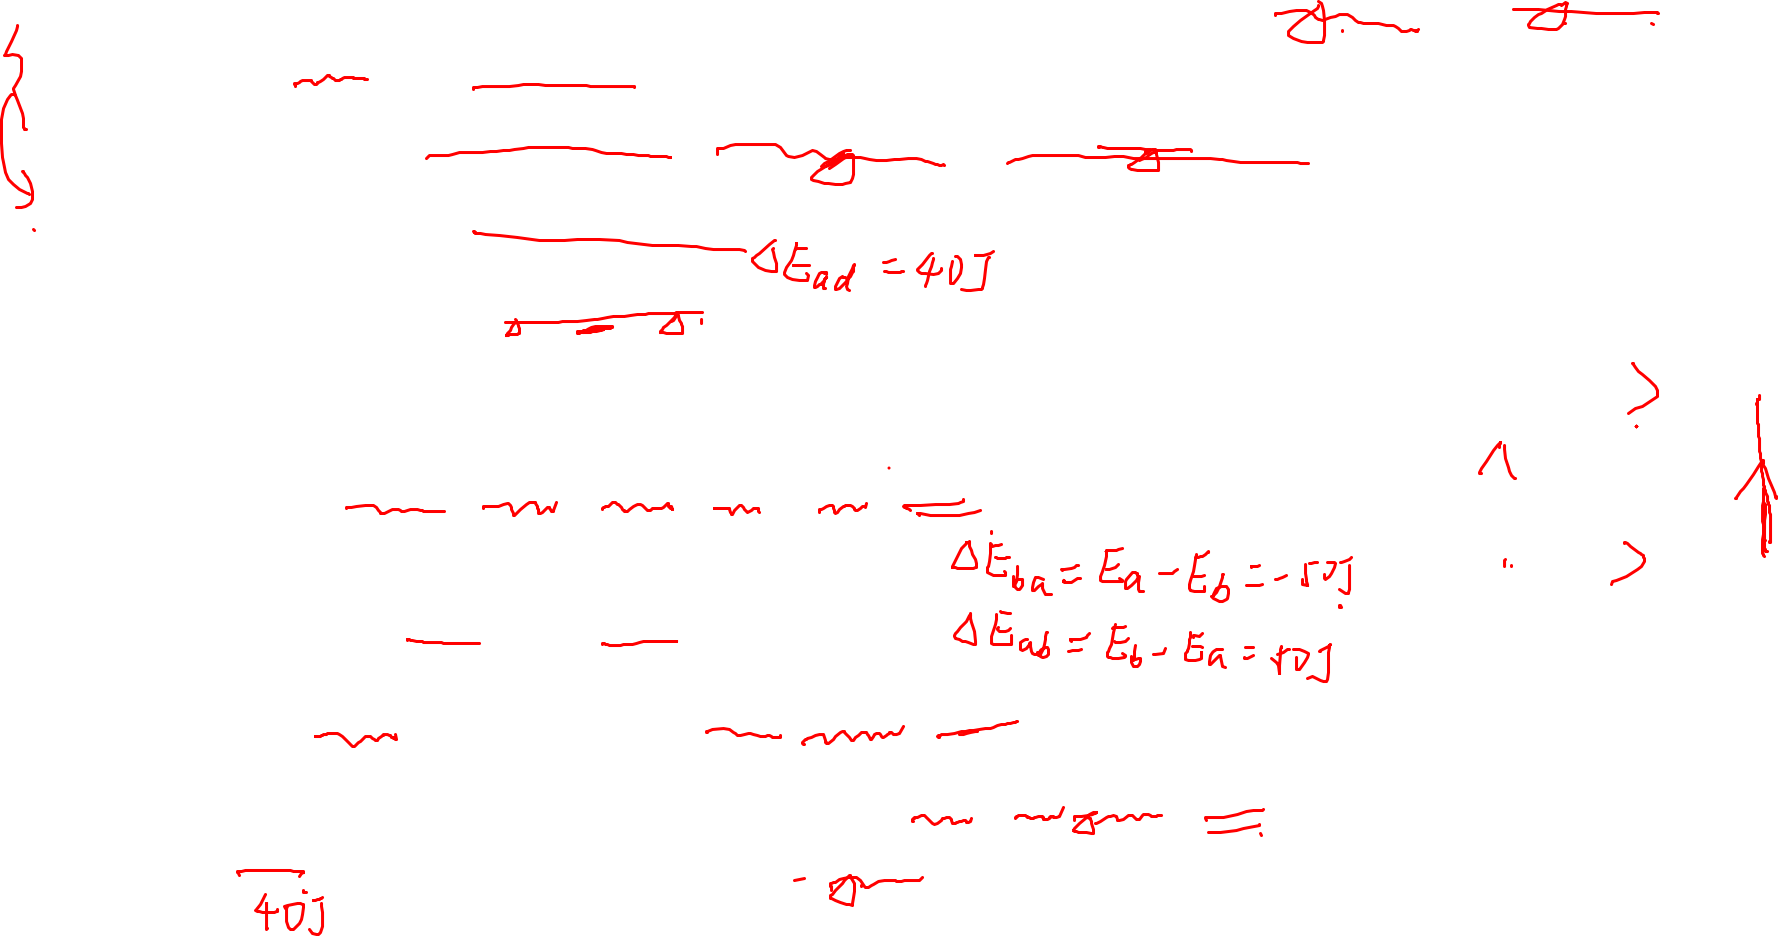 ΔE_ad = 40J
ΔE_ba = E_a - E_b = -50J
ΔE_ab = E_b - E_a = 50J
40J